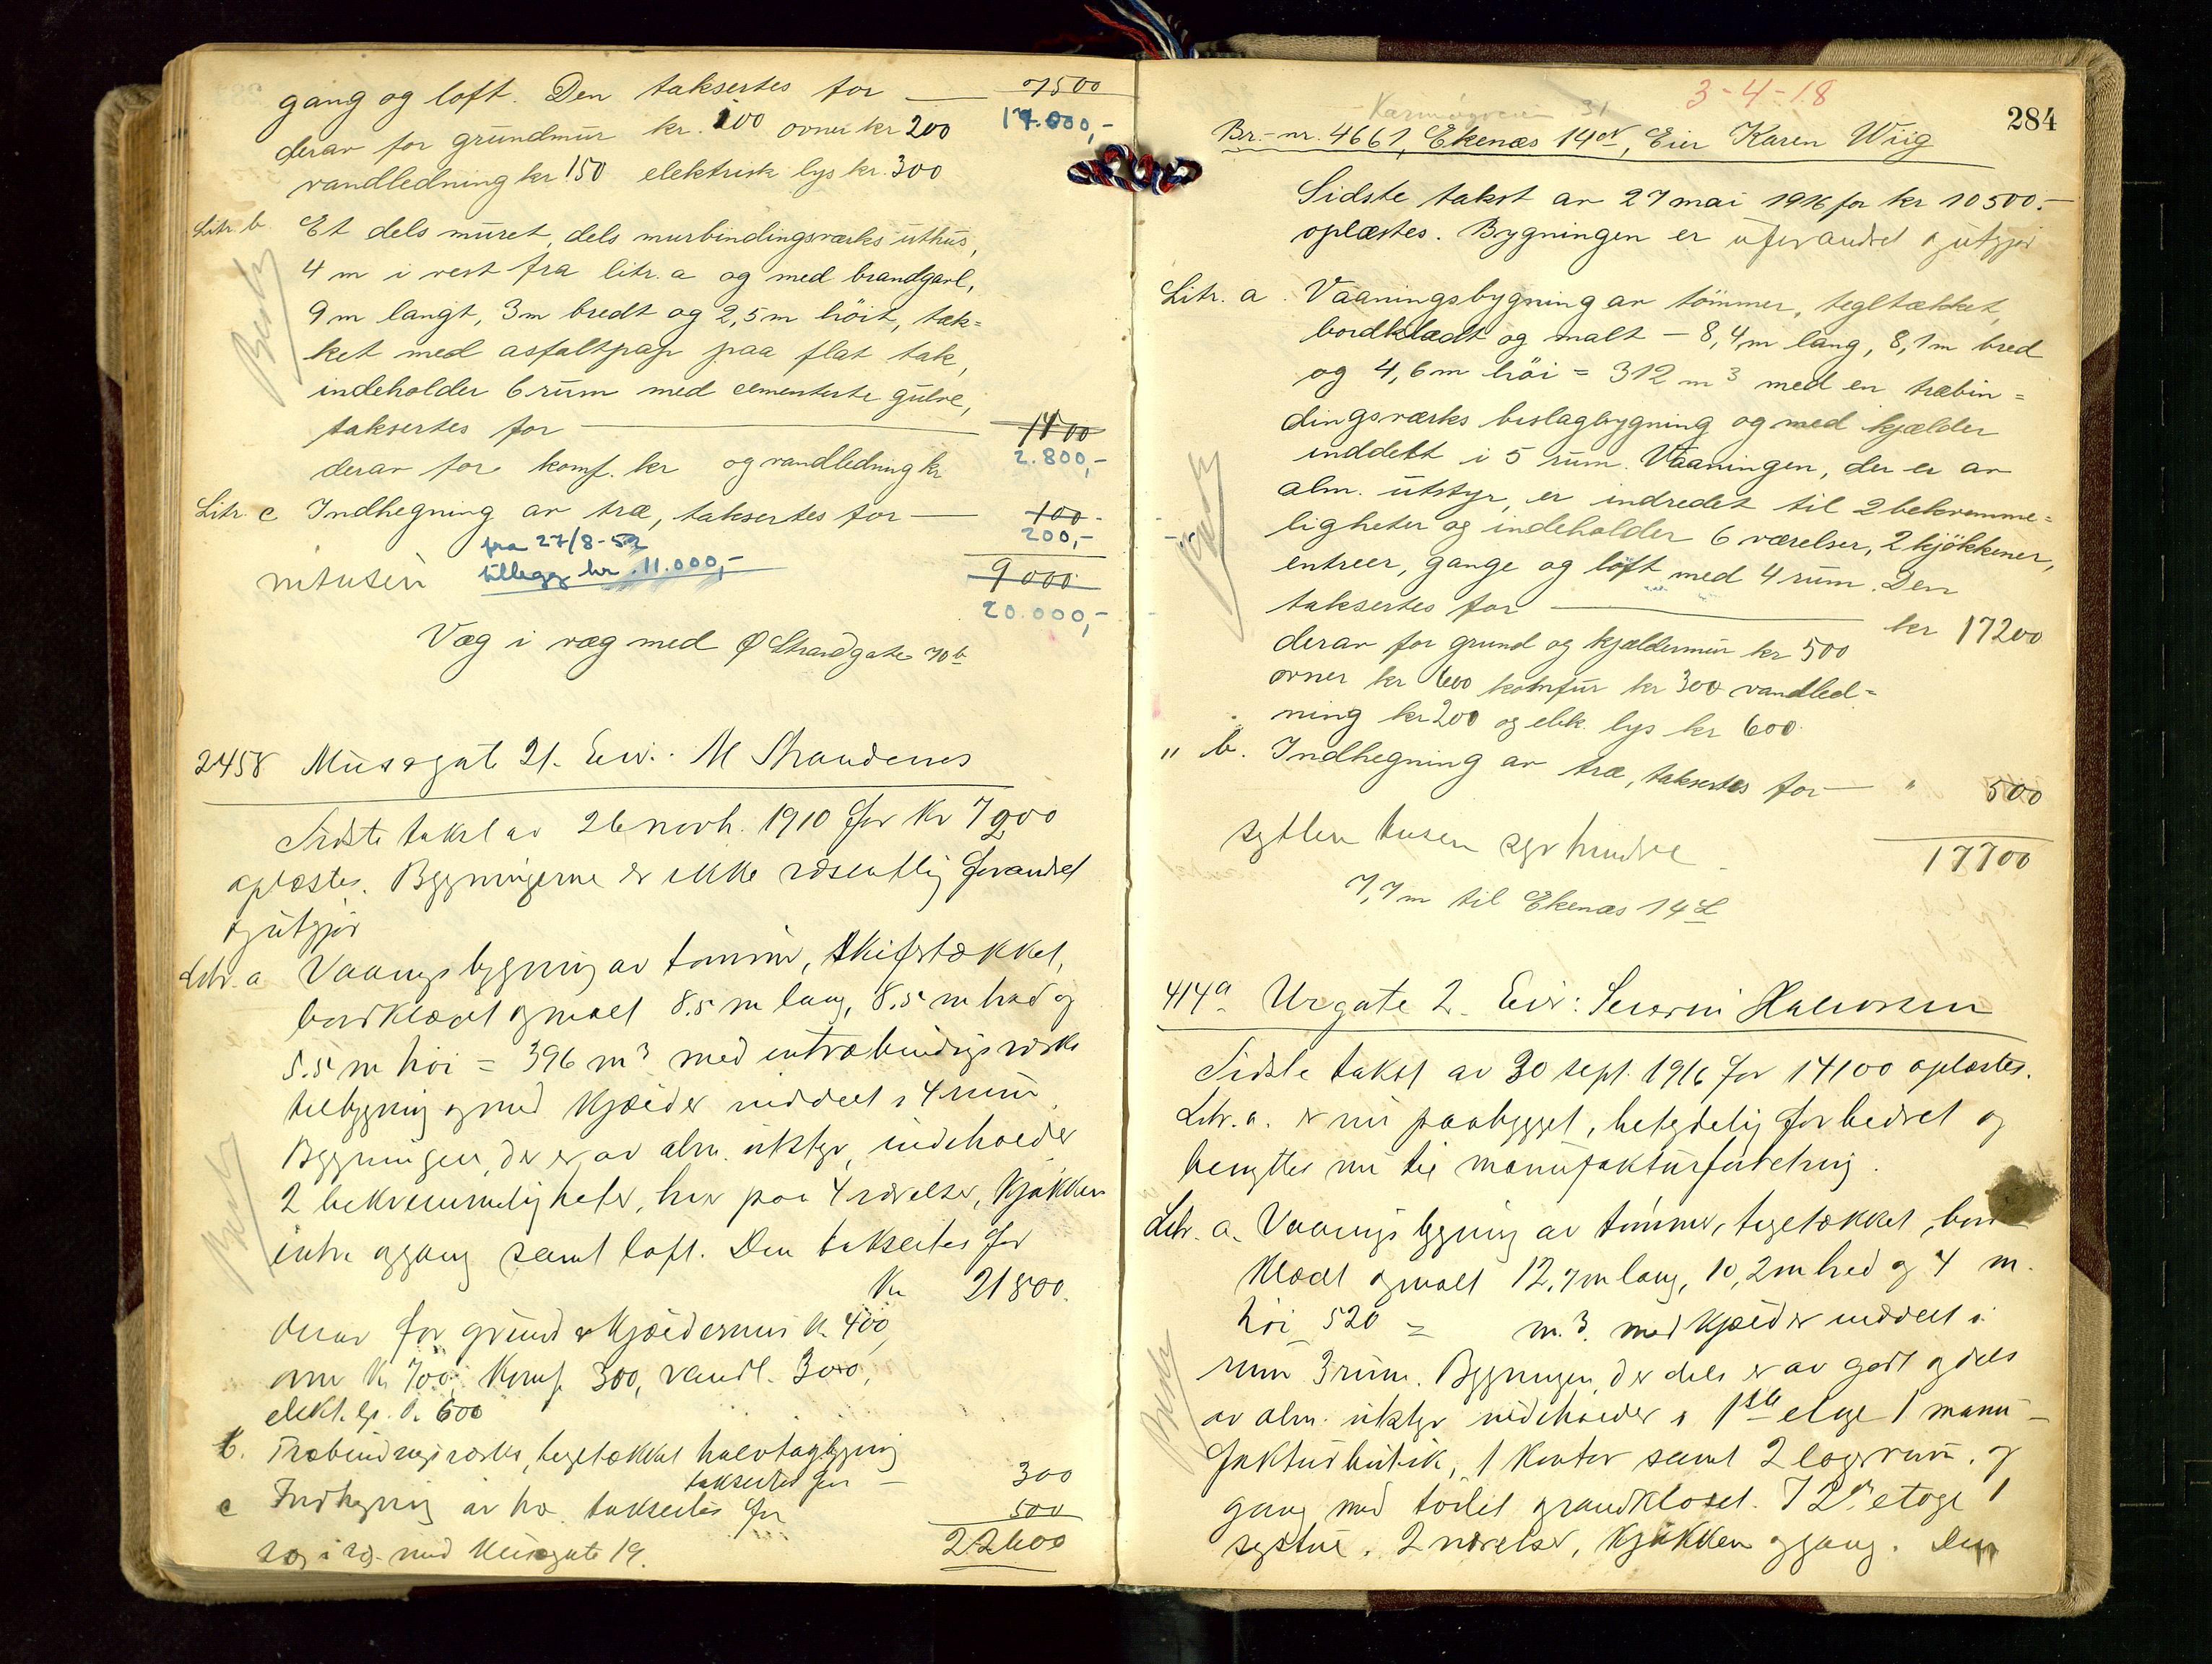 gang og loft. Den taksertes for — 7500
17.000,-
derav for grundmur kr. 100 ovner kr 200
vandledning kr 150 elektrisk lys kr. 300
Litr. b. Et dels muret, dels murbindingsverks uthus,
4 m i vest fra litr. a og med brandgavl,
9 m langt, 3 m bredt og 2,5 m höit, tæk=
ket med asfaltpap paa flat tak,
indeholder 6 rum med cementerte gulve,
taksertes for — 1400
2.800,-
derav for komf. kr og vandledning kr
Litr. c Indhegning av træ, taksertes for — 100
200,-
fra 27/8-52
nitusen tillegg kr. 11.000,-
9000
20.000,-
Væg i væg med Ø Strandgate 70 b
2458 Musegate 21. Eier: M Strandenes
Sidste takst av 26 novb. 1910 for Kr 7200
oplæstes. Bygningerne er ikke væsentlig forandret
og utgjør
Litr. a Vaaningsbygning av tømmer, skifertækket,
bordklædt og malt 8.5 m lang, 8.5 m bred og
5.5 m høi = 396 m3 med en træbindingsverks
tilbygning og med kjælder inddelt i 4 rum.
Bygningen, der er av alm. utstyr, indeholder
2 bekvemmeligheter, hver paa 4 værelser, kjøkken
entre og gang samt loft. Den taksertes for
Kr 21800.
derav for grund & kjældermur kr. 400,
ovne kr 700, komf. 300, vandl. 300,
elekt. ly. kr. 600
b. Træbindingsverks, tegltækket halvtagbygning
taksertes for — 300
c Indhegning av træ taksertes for 500
22600
væg i væg med Musegate 19.
3-4-18
284
Karmøyveien 31
Br.-nr. 4661, Ekenæs 14 N, Eier Karen Wiig
Sidste takst av 27 mai 1916 for kr 10500.-
oplæstes. Bygningen er uforandret og utgjør
Litr. a. Vaaningsbygning av tömmer, tegltækket,
bordklædt og malt – 8,4 m lang, 8,1 m bred
og 4,6 m höi = 312 m3 med en træbin=
dingsværks bislagbygning og med kjælder
inddelt i 5 rum. Vaaningen, der er av
alm. utstyr, er indredet til 2 bekvemme=
ligheter og indeholder 6 værelser, 2 kjökkener,
entreer, gange og loft med 4 rum. Den
taksertes for — kr 17200
derav for grund og kjældermur kr 500
ovner kr 600 komfur kr 300 vandled=
ning kr 200 og elek. lys kr 600.
" b. Indhegning av træ, taksertes for — " 500
sytten tusen syv hundre 17700
7,7 m til Ekenæs 14 L
414a Urgate 2. Eier: Severin Halvorsen
Sidste takst av 30 sept. 1916 for 14100 oplæstes.
Litr. a. er nu paabygget, betydelig forbedret og
benyttes nu til manufakturforretning.
Litr. a. Vaaningsbygning av tømmer, tegltækket, bord
klædt og malt 12,7 m lang, 10,2 m bred og 4 m.
høi 520 = m.3. med kjælder inddelt i
rum 3 rum. Bygningen, der dels er av godt og dels
av alm. utstyr indeholder i 1ste etage 1 manu-
fakturbutik, 1 kontor samt 2 lagerrum, og
gang med toilet og vandkloset. I 2n etage 1
systue, 2 værelser, kjøkken og gang. Den